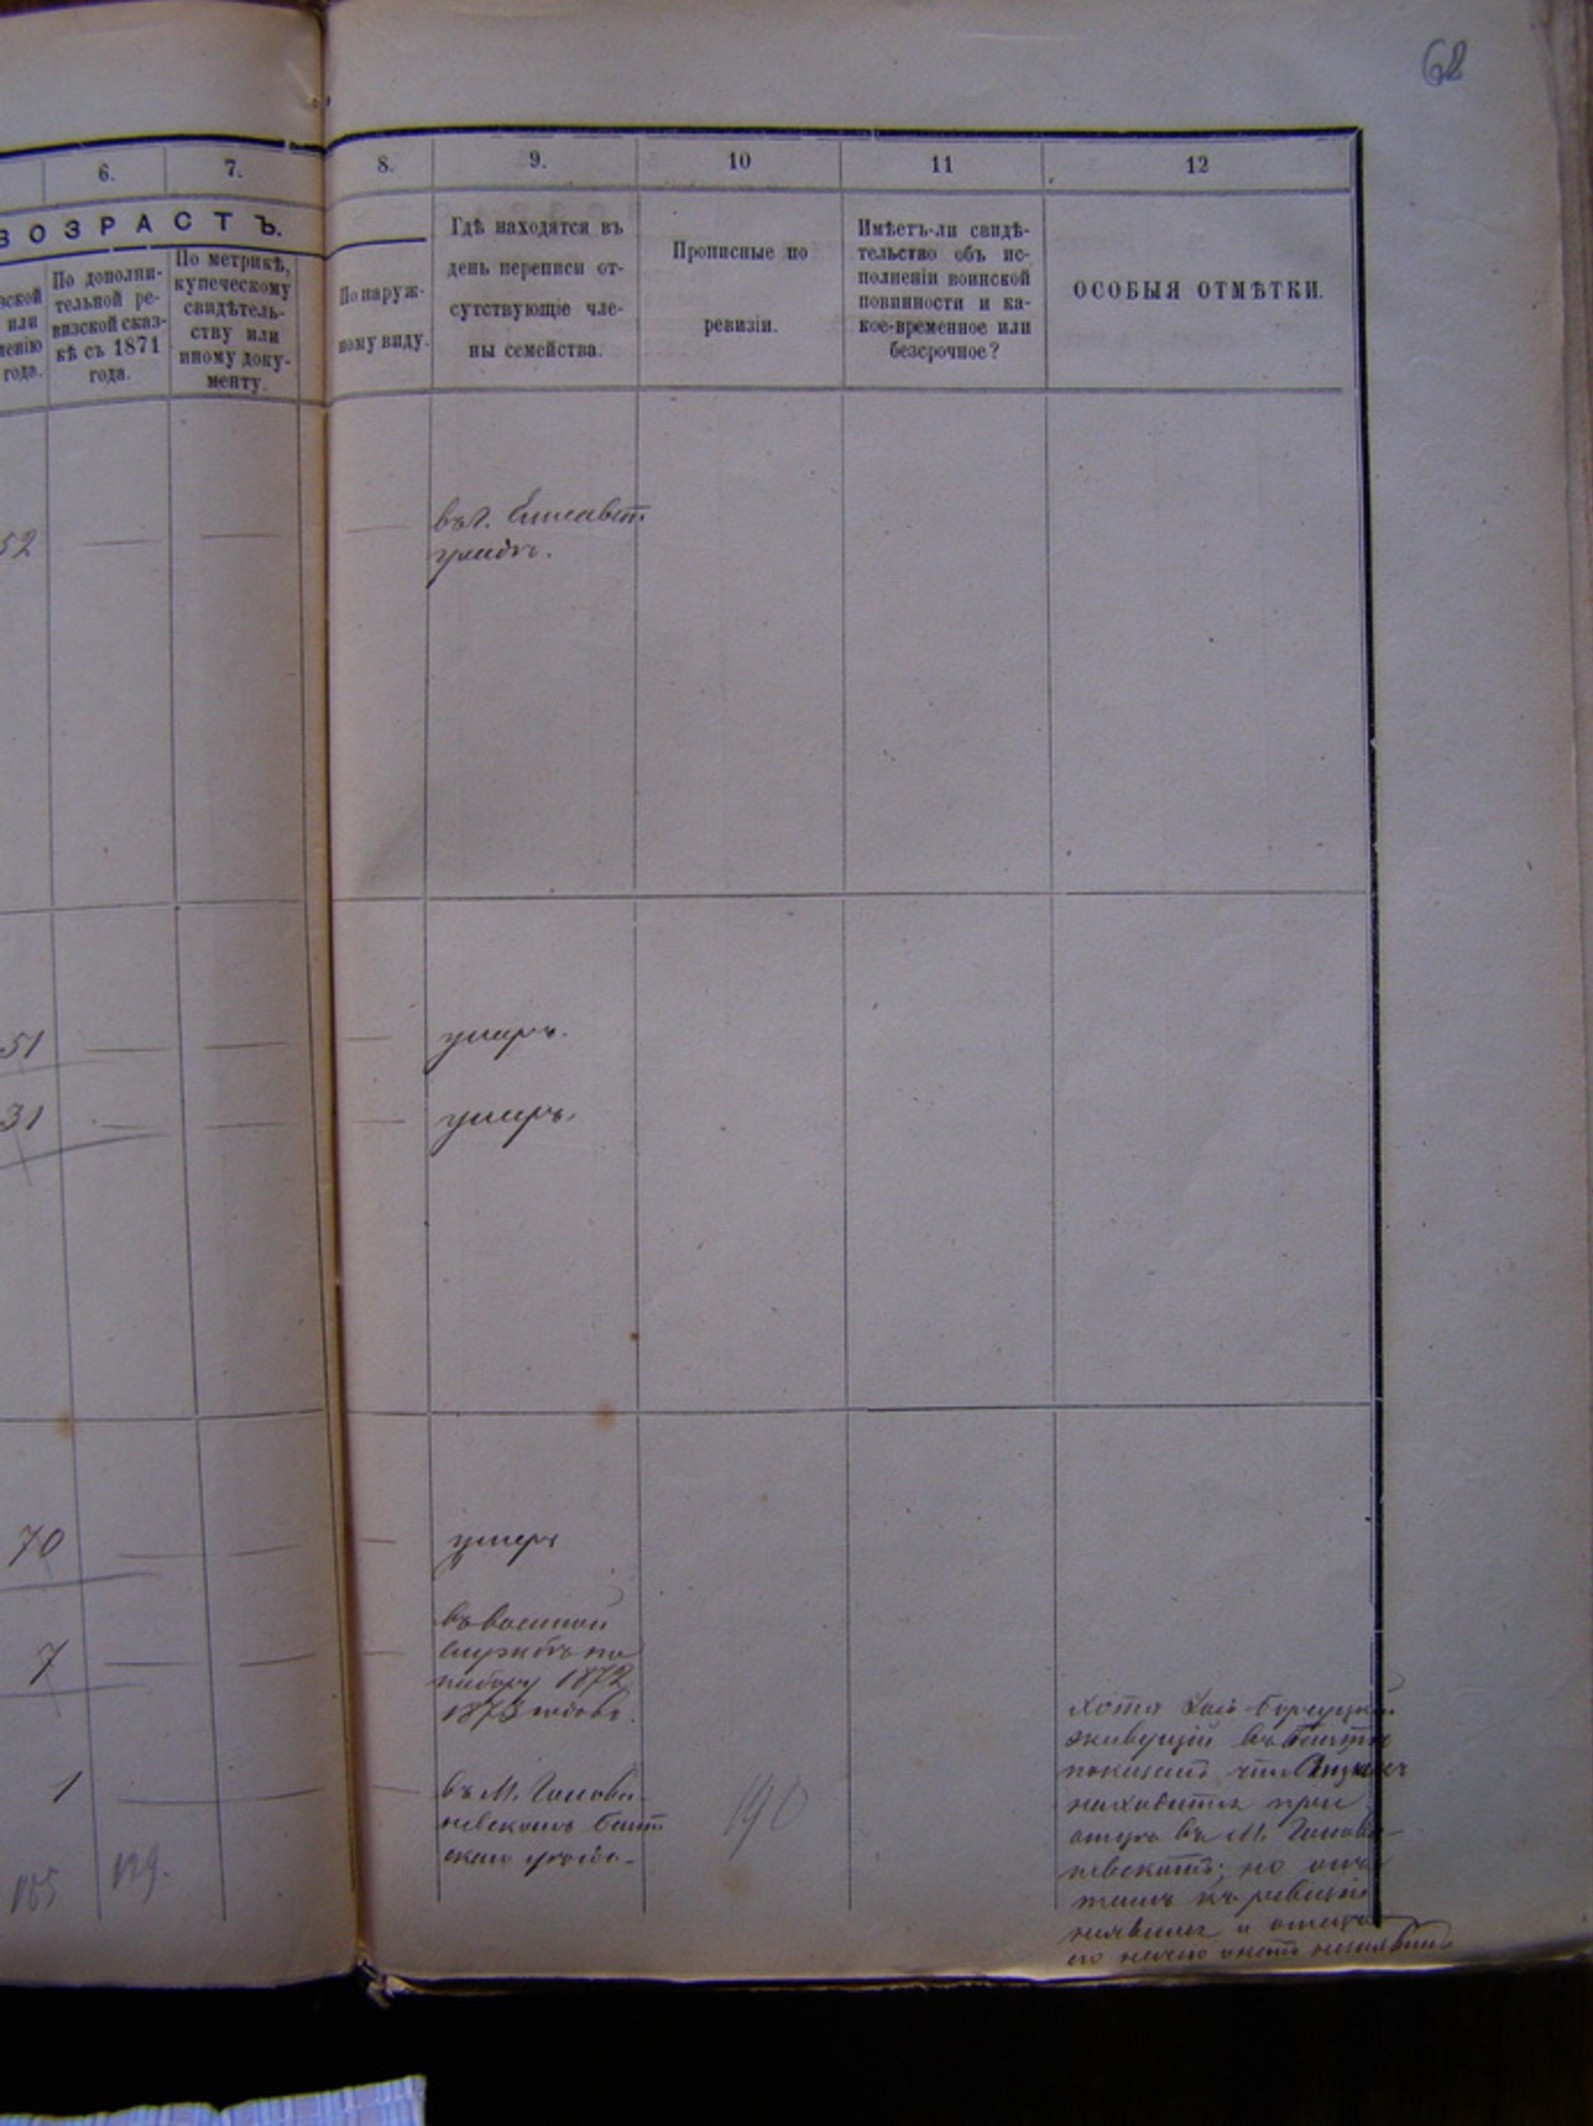 68
6.
7.
8.
9.
10
11
12
ВОЗРАСТЪ.
вской
или
ленію
года.
По дополни-
тельной ре-
визской сказ-
кѣ съ 1871
года.
По метрикѣ,
купеческому
свидѣтель-
ству или
иному доку-
менту.
По наруж-
ному виду.
Гдѣ находятся въ
день переписи от-
сутствующіе чле-
ны семейства.
Прописные по
ревизіи.
Имѣетъ-ли свидѣ-
тельство объ ис-
полненіи воинской
повинности и ка-
кое-временное или
безсрочное?
ОСОБЫЯ ОТМѢТКИ.
52 — — —
въ г. Елисавет
градѣ.
51 — — — умеръ.
31 — — — умеръ.
70 — — — умеръ
въ военной
7 — — — службѣ по
набору 1872
1873 годовъ.
1 — — въ М. Голова-
невскомъ Балт
скаго уѣзда.
190
185 129.
хотя
живущій въ Балтѣ
показалъ что
находится при
отцѣ въ М. Голова-
невскомъ; но онъ
къ ревизіи
неявился и отецъ
его